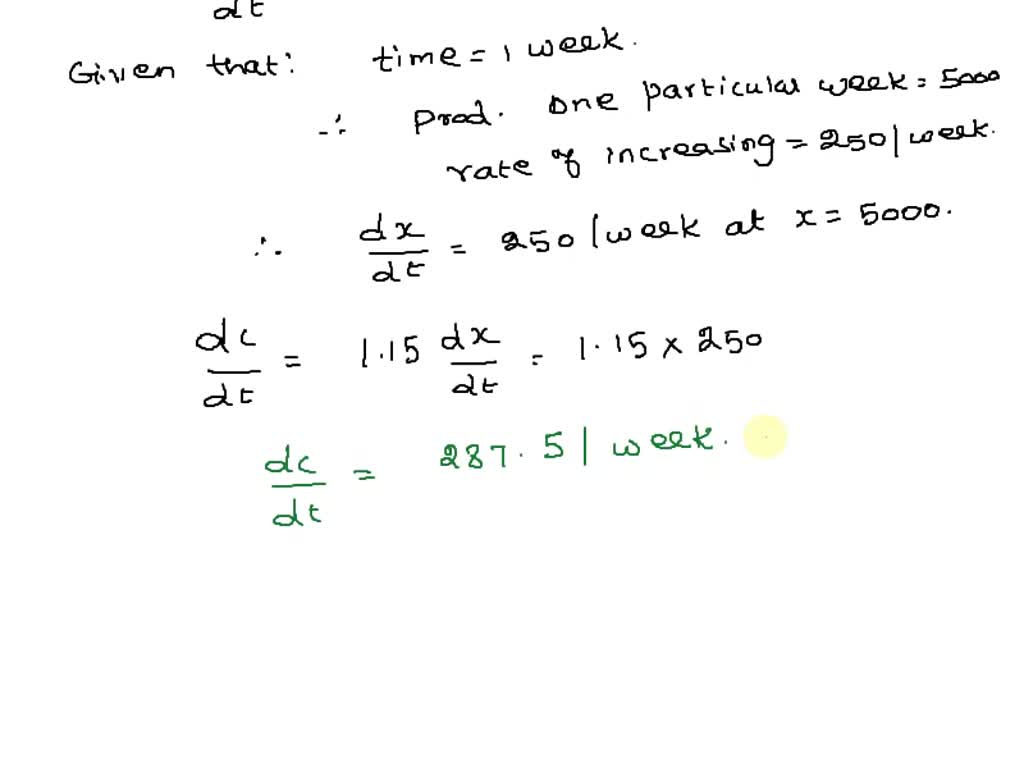 dt
Given that: time = 1 week.
∴ Prod. One particular week = 5000
rate of increasing = 250 / week.
∴ dx/dt = 250 / week at x = 5000.
dc/dt = 1.15 dx/dt = 1.15 × 250
dc/dt = 287.5 / week.